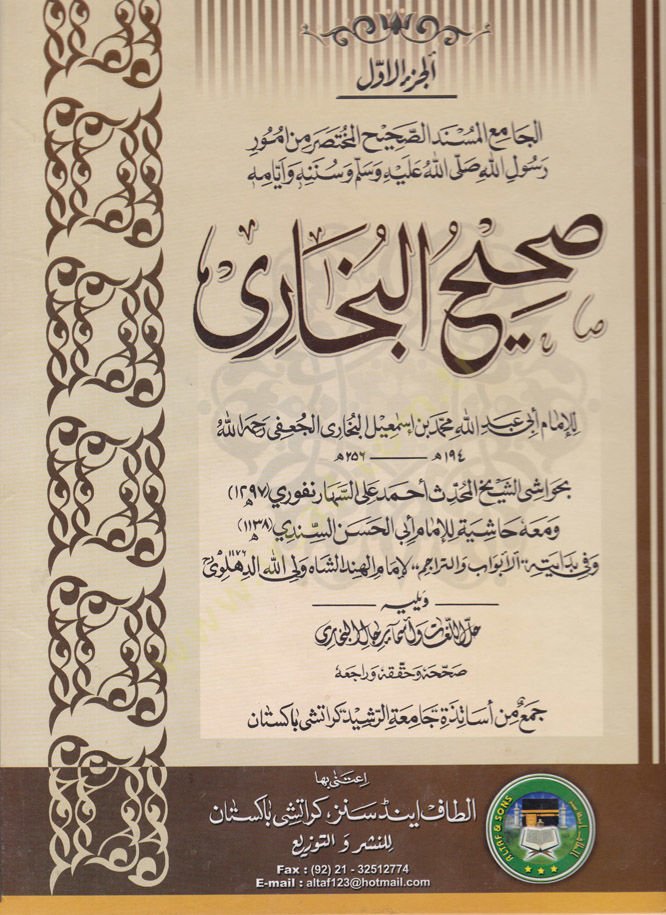 الجزء الاوّل
الجامع المسند الصحيح المختصر من امور
رسول الله صلى الله عليه وسلم وسننه وايامه
صحيح البخاری
للإمام أبي عبد الله محمد بن اسمعيل البخاری الجعفی رحمه الله
١٩٤ھ ——— ٢٥٦ھ
بحواشی الشيخ المحدث أحمد علی السهارنفوري (١٢٩٧ھ)
ومعه حاشية للإمام أبي الحسن السندي (١١٣٨ھ)
وفي بدايته "الأبواب والتراجم" لإمام الهند الشاه ولی الله الدهلوی ١١٧٦ھ
ويليه
حل اللغات وأسماء رجال البخاري
صححه وحققه وراجعه
جمع من أساتذة جامعة الرشيد كراتشی باكستان
اعتنی بها
الطاف اینڈ سنز، کراتشی باكستان
للنشر والتوزيع
Fax : (92) 21 - 32512774
E-mail : altaf123@hotmail.com
ALTAF & SONS